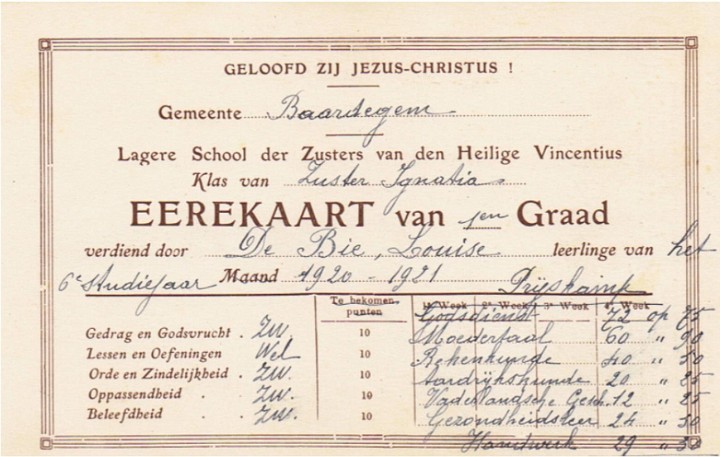 GELOOFD ZIJ JEZUS-CHRISTUS !
Gemeente Baardegem
Lagere School der Zusters van den Heilige Vincentius
Klas van Zuster Ignatia
EEREKAART van 1en Graad
verdiend door De Bie, Louise leerlinge van het
6e Studiejaar Maand 1920-1921 Prijskamp
Te bekomen punten 1e Week 2e Week 3e Week 4e Week
Godsdienst 72 op 75
Gedrag en Godsvrucht . Zw. 10 Moedertaal 60 " 90
Lessen en Oefeningen Wel 10 Rekenkunde 40 " 50
Orde en Zindelijkheid . Zw. 10 Aardrijkskunde 20 " 25
Oppassendheid . Zw. 10 Vaderlandsche Gesch. 12 " 25
Beleefdheid . Zw. 10 Gezondheidsleer 24 " 30
Handwerk 29 " 30